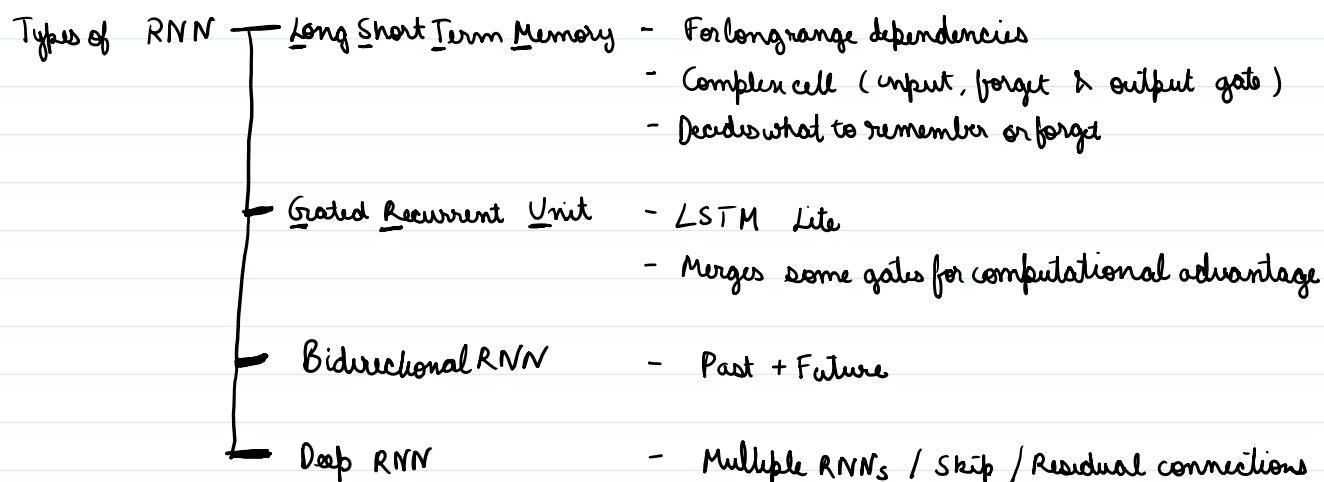 Types of RNN Long Short Term Memory - For long range dependencies
- Complex cell (input, forget & output gate)
- Decides what to remember or forget
Grated Recurrent Unit - LSTM Lite
- Merges some gates for computational advantage
Bidirectional RNN - Past + Future
Deep RNN - Multiple RNNs / Skip / Residual connections